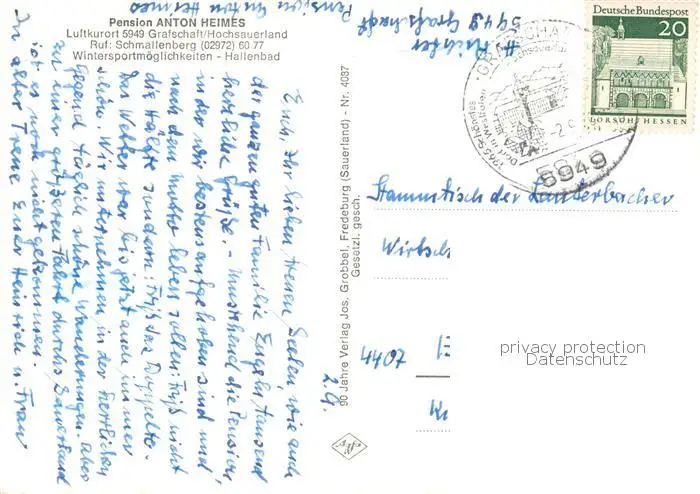 Pension ANTON HEIMES
Luftkurort 5949 Grafschaft/Hochsauerland
Ruf: Schmallenberg (02972) 60 77
Wintersportmöglichkeiten - Hallenbad
Pension Anton Heimes
5949 Grafschaft
Euch, Ihr lieben treuen Seelen wie auch
der ganzen guten Familie Engeln, tausend
herzliche Grüße. - Umstehend die Pension,
in der wir bestens aufgehoben sind und
nach dem Motto leben sollten: Friß nicht
die Hälfte sondern: Friß das Doppelte.
Das Wetter war bis jetzt auch immer
schön. Wir unternehmen, in der herrlichen
Gegend täglich schöne Wanderungen. Aber
zu einer größeren Fahrt durchs Sauerland
ist es noch nicht gekommen.
In alter Treue Euer Heinrich u. Frau
2.9.
90 Jahre Verlag Jos. Grobbel, Fredeburg (Sauerland) - Nr. 4087
Gesetzl. gesch.
Deutsche Bundespost
20
LORSCH/HESSEN
5949
Stammtisch der Lauterbacher
Wirtsch
4407
privacy protection
Datenschutz